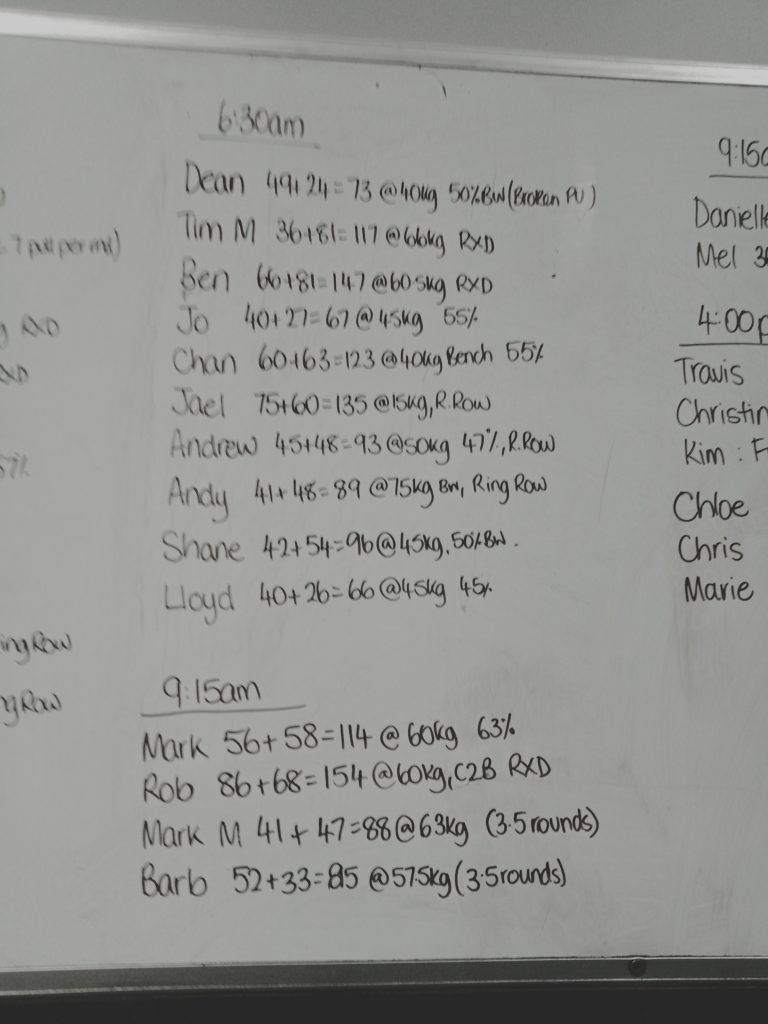 6:30am
Dean 49+24=73 @40kg 50%BW(Broken PU)
Tim M 36+81=117 @66kg RXD
Ben 66+81=147 @60.5kg RXD
Jo 40+27=67 @45kg 55%
Chan 60+63=123 @40kg Bench 55%
Jael 75+60=135 @15kg, R.Row
Andrew 45+48=93 @50kg 47%, R.Row
Andy 41+48=89 @75kg BW, Ring Row
Shane 42+54=96 @45kg, 50%BW.
Lloyd 40+26=66 @45kg 45%
9:15am
Mark 56+58=114 @60kg 63%
Rob 86+68=154 @60kg, C2B RXD
Mark M 41+47=88 @63kg (3.5rounds)
Barb 52+33=85 @57.5kg (3.5rounds)
RXD
ing Row
g Row
9:15a
Danielle
Mel
4:00p
Travis
Christin
Kim : F
Chloe
Chris
Marie